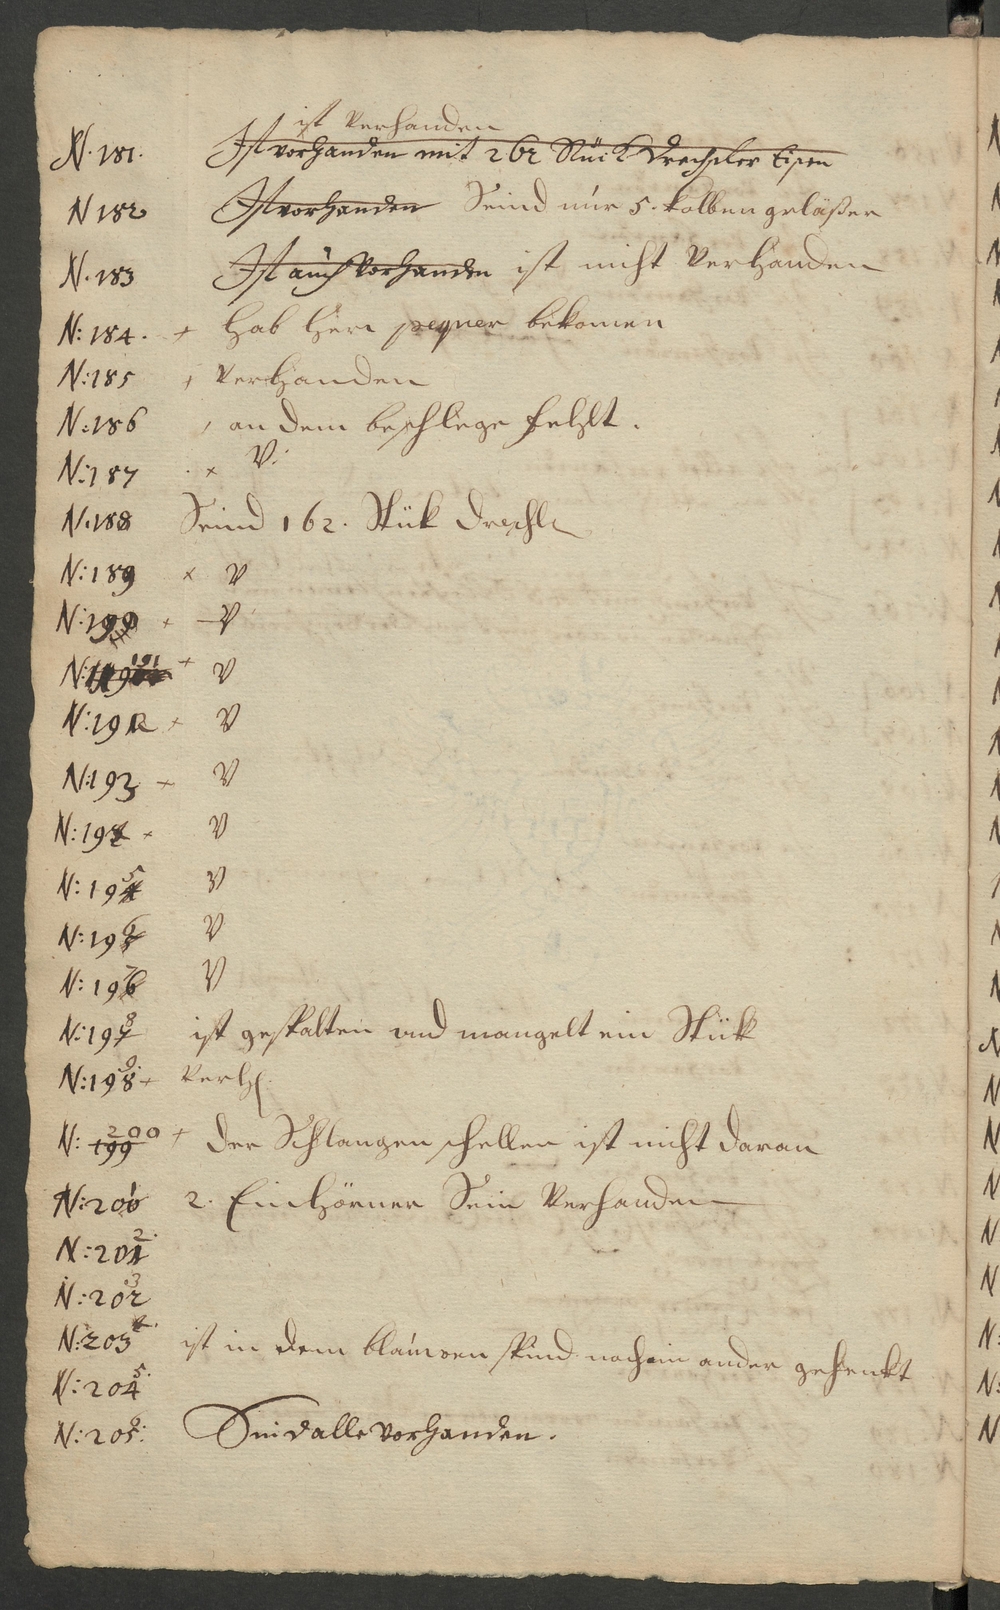 ist Verhanden
N. 181. Ist vorhanden mit 262 Stück Drechsler Eisen
N 182 Ist vorhanden Seind núr 5. kolben geläßer
N. 183 Ist aúch Vorhanden ist nicht Verhanden
N: 184. + Hab Herr bekomen
N: 185 Verhanden
N: 186 an dem beschlege fehlt.
N: 187 + V:
N. 188 Seind 162. Stük
N: 189 x V
N: 190 + V
N: 191 + V
N: 192 + V
N: 193 + V
N: 194 + V
N: 195 V
N: 196 V
N: 197 V
N: 198 ist gespalten und mangelt ein Stük
N: 199 + Verh
N: 200 + Der Schlangen schellen ist nicht daran
N: 201 2. Einhörner Sein Verhanden
N: 202
N: 203
N: 204 ist in dem blaúwen nach ein ander gehenkt
N: 205
N: 206 Sind alle vorhanden.